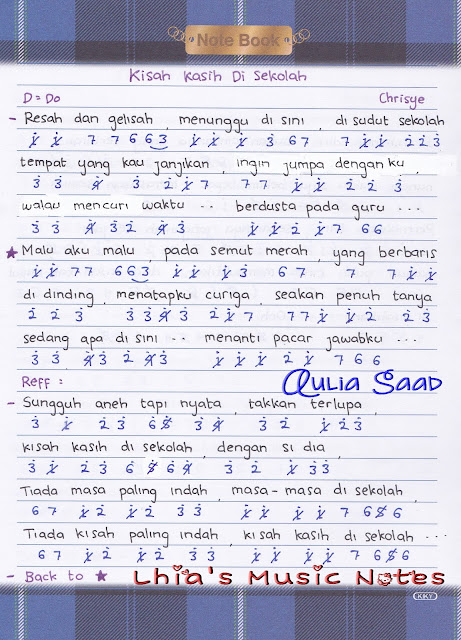 Note Book
Kisah Kasih Di Sekolah
D = Do Chrisye
- Resah dan gelisah, menunggu di sini, di sudut sekolah
1 1 7 7 6 6 3 1 1 1 3 6 7 7 1 1 1 2 2 3
tempat yang kau janjikan, ingin jumpa dengan ku,
3 3 4 3 2 1 7 7 7 1 1 2 2 3
walau mencuri waktu .. berdusta pada guru ...
3 3 4 3 2 4 3 1 1 2 1 7 6 6
★ Malu aku malu, pada semut merah, yang berbaris
1 1 7 7 6 6 3 1 1 1 3 6 7 7 7 1 1
di dinding, menatapku curiga, seakan penuh tanya
2 2 3 3 3 4 3 2 1 7 7 7 1 1 2 2 3
sedang apa di sini .. menanti pacar jawabku ...
3 3 4 3 2 4 3 1 1 1 2 1 7 6 6
Reff : Aulia Saad
- Sungguh aneh tapi nyata, takkan terlupa,
3 1 2 3 6 5 3 4 3 2 1 2 3
kisah kasih di sekolah, dengan si dia,
3 1 2 3 6 5 6 4 3 2 1 3 3
Tiada masa paling indah, masa-masa di sekolah,
6 7 1 2 1 2 3 3 1 1 1 1 7 6 5 6
Tiada kisah paling indah, kisah kasih di sekolah ...
6 7 1 2 1 2 3 3 1 1 1 1 7 6 5 6
- Back to ★ Lhia's Music Notes
KKY